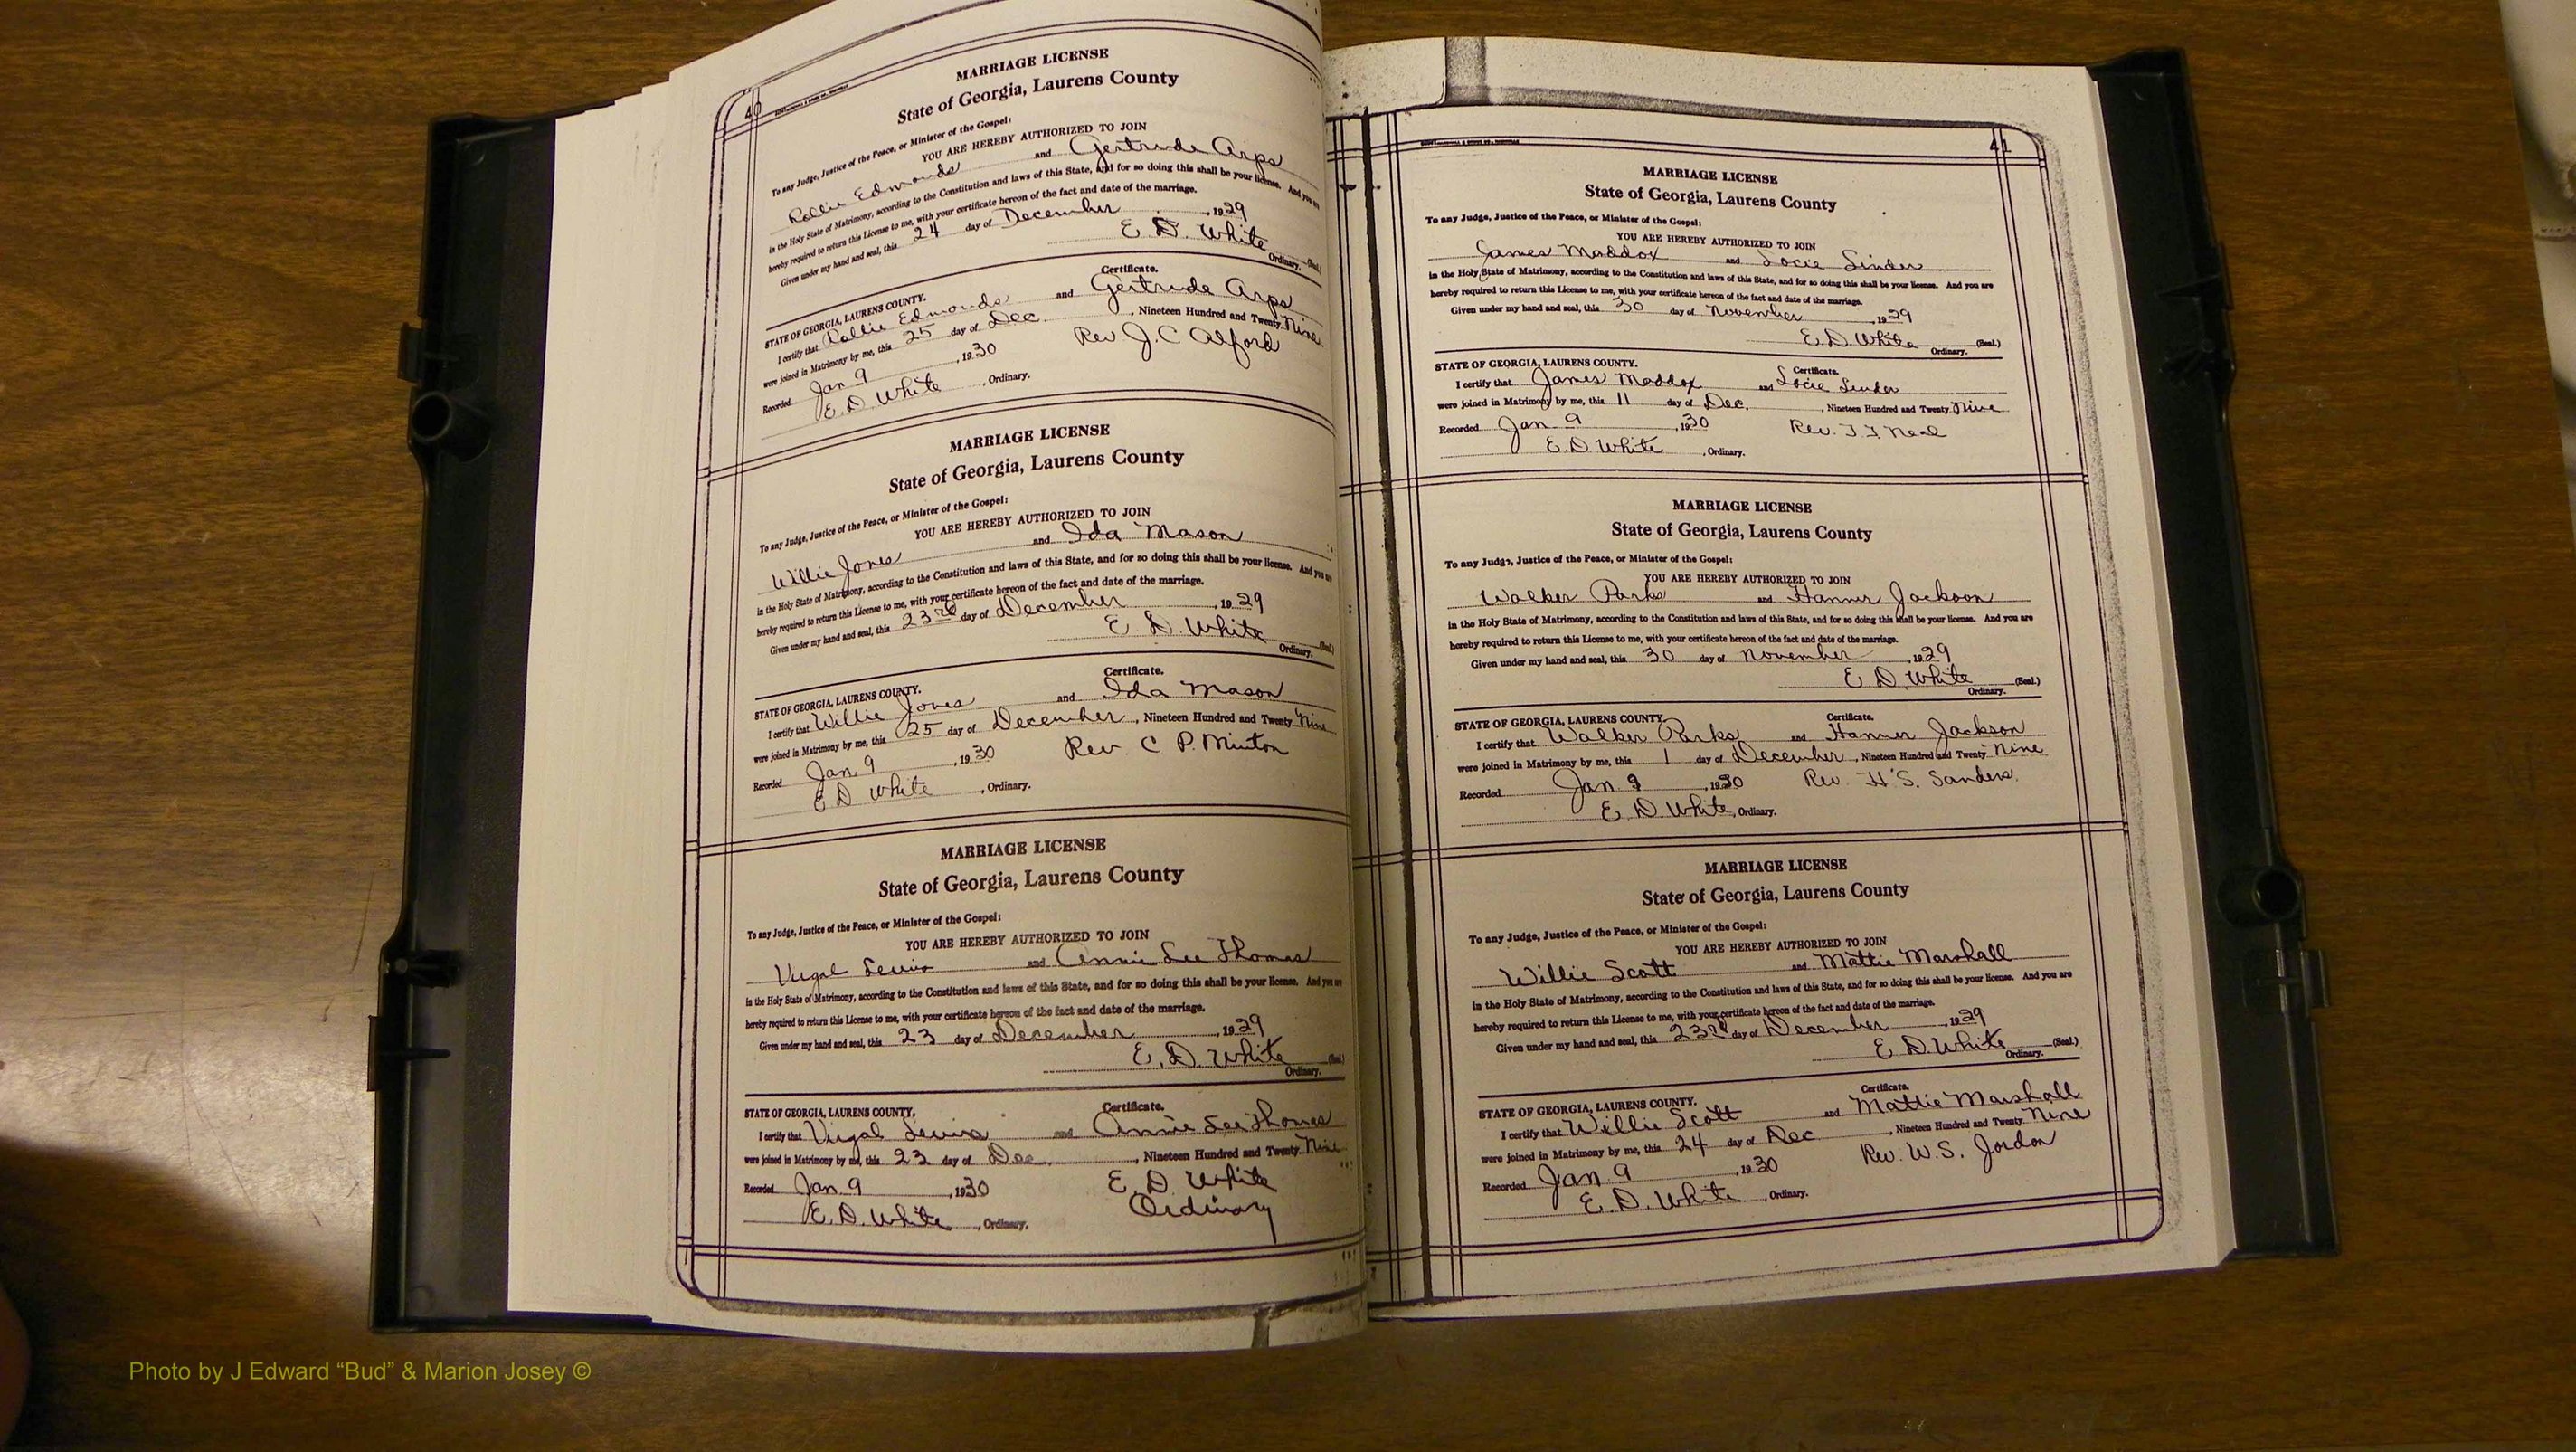 40
MARRIAGE LICENSE
State of Georgia, Laurens County
To any Judge, Justice of the Peace, or Minister of the Gospel:
YOU ARE HEREBY AUTHORIZED TO JOIN
Rollie Edmonds and Gertrude Arps
in the Holy State of Matrimony, according to the Constitution and laws of this State, and for so doing this shall be your license. And you are
hereby required to return this License to me, with your certificate hereon of the fact and date of the marriage.
Given under my hand and seal, this 24 day of December, 1929
E. D. White (Seal.)
Ordinary.
Certificate.
STATE OF GEORGIA, LAURENS COUNTY.
I certify that Rollie Edmonds and Gertrude Arps
were joined in Matrimony by me, this 25 day of Dec., Nineteen Hundred and Twenty Nine
Recorded Jan 9, 1930 Rev J. C Alford
E. D. White, Ordinary.
MARRIAGE LICENSE
State of Georgia, Laurens County
To any Judge, Justice of the Peace, or Minister of the Gospel:
YOU ARE HEREBY AUTHORIZED TO JOIN
Willie Jones and Ida Mason
in the Holy State of Matrimony, according to the Constitution and laws of this State, and for so doing this shall be your license. And you are
hereby required to return this License to me, with your certificate hereon of the fact and date of the marriage.
Given under my hand and seal, this 23rd day of December, 1929
E D. White (Seal.)
Ordinary.
Certificate.
STATE OF GEORGIA, LAURENS COUNTY.
I certify that Willie Jones and Ida Mason
were joined in Matrimony by me, this 25 day of December, Nineteen Hundred and Twenty Nine
Recorded Jan. 9, 1930 Rev C P. Minton
E D White, Ordinary.
MARRIAGE LICENSE
State of Georgia, Laurens County
To any Judge, Justice of the Peace, or Minister of the Gospel:
YOU ARE HEREBY AUTHORIZED TO JOIN
Virgal Lewis and Annie Lee Thomas
in the Holy State of Matrimony, according to the Constitution and laws of this State, and for so doing this shall be your license. And you are
hereby required to return this License to me, with your certificate hereon of the fact and date of the marriage.
Given under my hand and seal, this 23 day of December, 1929
E. D. White (Seal)
Ordinary.
Certificate.
STATE OF GEORGIA, LAURENS COUNTY.
I certify that Virgal Lewis and Annie Lee Thomas
were joined in Matrimony by me, this 23 day of Dec., Nineteen Hundred and Twenty Nine
Recorded Jan. 9, 1930 E. D. White
E. D. White, Ordinary. Ordinary
41
MARRIAGE LICENSE
State of Georgia, Laurens County
To any Judge, Justice of the Peace, or Minister of the Gospel:
YOU ARE HEREBY AUTHORIZED TO JOIN
James Maddox and Locie Linder
in the Holy State of Matrimony, according to the Constitution and laws of this State, and for so doing this shall be your license. And you are
hereby required to return this License to me, with your certificate hereon of the fact and date of the marriage.
Given under my hand and seal, this 30 day of November, 1929
E. D. White (Seal.)
Ordinary.
STATE OF GEORGIA, LAURENS COUNTY. Certificate.
I certify that James Maddox and Locie Linder
were joined in Matrimony by me, this 11 day of Dec., Nineteen Hundred and Twenty Nine
Recorded Jan 9, 1930 Rev. Neal
E. D. White, Ordinary.
MARRIAGE LICENSE
State of Georgia, Laurens County
To any Judge, Justice of the Peace, or Minister of the Gospel:
YOU ARE HEREBY AUTHORIZED TO JOIN
Walker Parks and Hanner Jackson
in the Holy State of Matrimony, according to the Constitution and laws of this State, and for so doing this shall be your license. And you are
hereby required to return this License to me, with your certificate hereon of the fact and date of the marriage.
Given under my hand and seal, this 30 day of November, 1929
E. D. White (Seal.)
Ordinary.
STATE OF GEORGIA, LAURENS COUNTY. Certificate.
I certify that Walker Parks and Hanner Jackson
were joined in Matrimony by me, this 1 day of December, Nineteen Hundred and Twenty Nine
Recorded Jan. 9, 1930 Rev. H. S. Sanders.
E. D. White, Ordinary.
MARRIAGE LICENSE
State of Georgia, Laurens County
To any Judge, Justice of the Peace, or Minister of the Gospel:
YOU ARE HEREBY AUTHORIZED TO JOIN
Willie Scott and Mattie Marshall
in the Holy State of Matrimony, according to the Constitution and laws of this State, and for so doing this shall be your license. And you are
hereby required to return this License to me, with your certificate hereon of the fact and date of the marriage.
Given under my hand and seal, this 23rd day of December, 1929
E. D. White (Seal.)
Ordinary.
Certificate.
STATE OF GEORGIA, LAURENS COUNTY.
I certify that Willie Scott and Mattie Marshall
were joined in Matrimony by me, this 24 day of Dec, Nineteen Hundred and Twenty Nine
Recorded Jan 9, 1930 Rev. W. S. Jordon
E. D. White, Ordinary.
Photo by J Edward “Bud” & Marion Josey ©